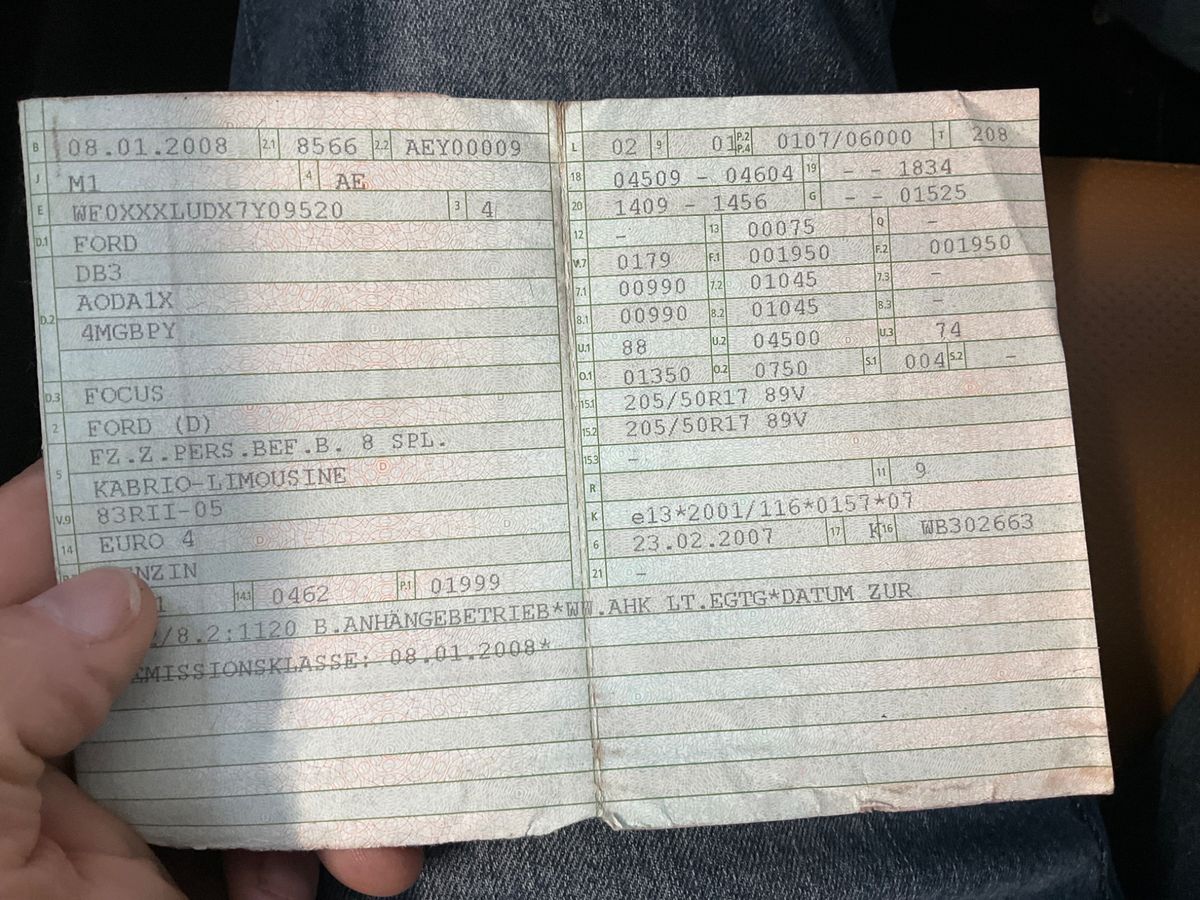 B 08.01.2008 2.1 8566 2.2 AEY00009
J M1 4 AE
E WF0XXXLUDX7Y09520 3 4
D.1 FORD
DB3
D.2 AODA1X
4MGBPY
D.3 FOCUS
2 FORD (D)
5 FZ.Z.PERS.BEF.B. 8 SPL.
KABRIO-LIMOUSINE
V.9 83RII-05
14 EURO 4
ENZIN
1 14.1 0462 P.1 01999
/8.2:1120 B.ANHÄNGEBETRIEB*WW.AHK LT.EGTG*DATUM ZUR
EMISSIONSKLASSE: 08.01.2008*
L 02 9 01 P.2 P.4 0107/06000 T 208
18 04509 - 04604 19 - - 1834
20 1409 - 1456 G - - 01525
12 - 13 00075 Q -
V.7 0179 F.1 001950 F.2 001950
7.1 00990 7.2 01045 7.3 -
8.1 00990 8.2 01045 8.3 -
U.1 88 U.2 04500 U.3 74
O.1 01350 O.2 0750 S.1 004 S.2 -
15.1 205/50R17 89V
15.2 205/50R17 89V
15.3 -
R 11 9
K e13*2001/116*0157*07
6 23.02.2007 17 K 16 WB302663
21 -